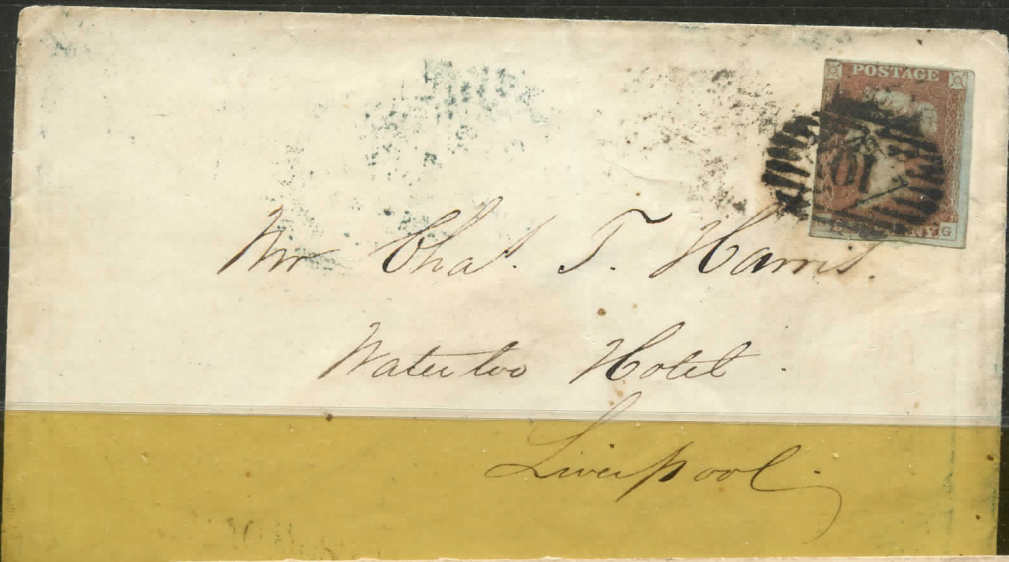 POSTAGE
10
G
Mr Chas. T. Harris.
Waterloo Hotel.
Liverpool.